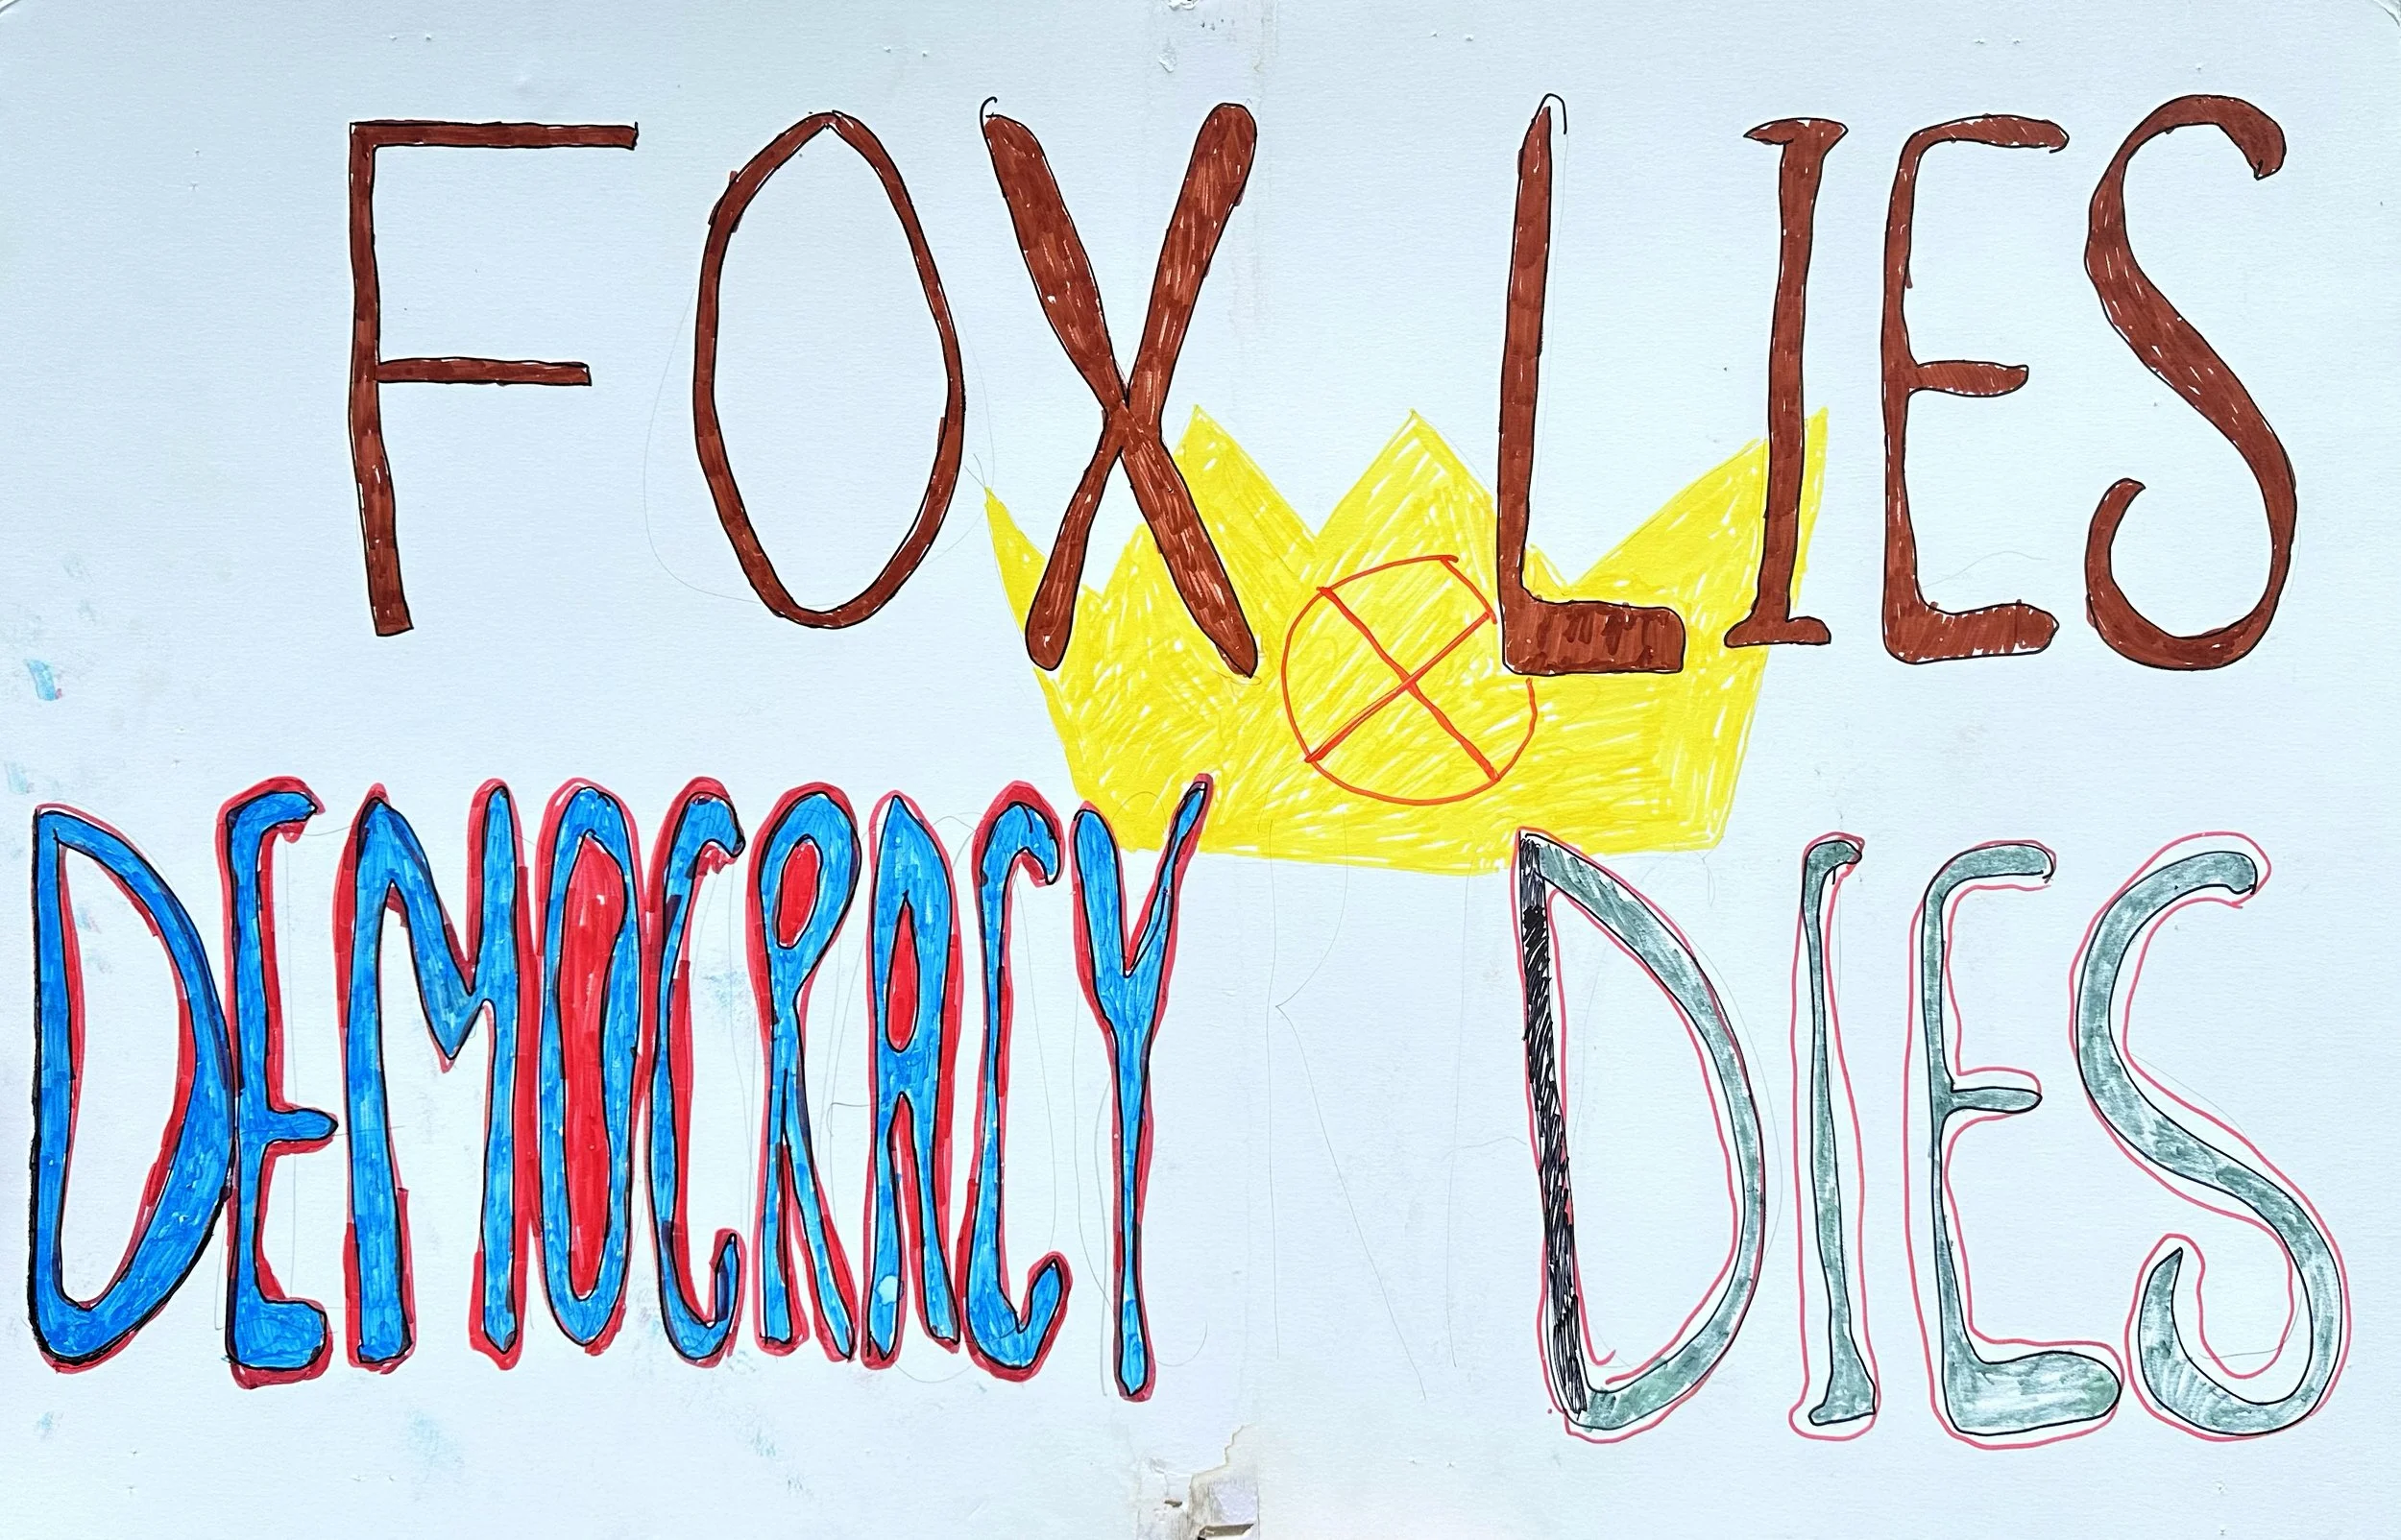 FOX LIES
DEMOCRACY DIES